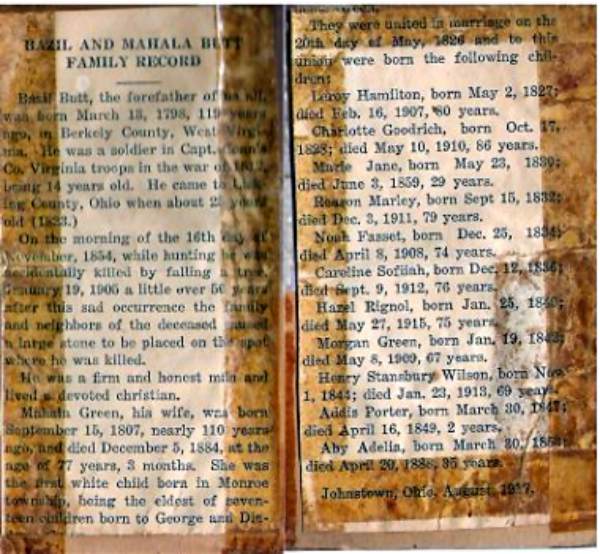 BAZIL AND MAHALA BUTT
FAMILY RECORD
Bazil Butt, the forefather of us all,
was born March 13, 1798, 119 years
ago, in Berkely County, West Virgi-
nia. He was a soldier in Capt.
Co. Virginia troops in the war of 1812,
being 14 years old. He came to Lick-
ing County, Ohio when about 25 years
old (1823.)
On the morning of the 16th day of
November, 1854, while hunting he was
accidentally killed by falling a tree.
January 19, 1905 a little over 50 years
after this sad occurrence the family
and neighbors of the deceased caused
a large stone to be placed on the spot
where he was killed.
He was a firm and honest man and
lived a devoted christian.
Mahala Green, his wife, was born
September 15, 1807, nearly 110 years
ago, and died December 5, 1884, at the
age of 77 years, 3 months. She was
the first white child born in Monroe
township, being the eldest of seven-
teen children born to George and Die-
They were united in marriage on the
20th day of May, 1826 and to this
union were born the following chil-
dren:
Leroy Hamilton, born May 2, 1827;
died Feb. 16, 1907, 80 years.
Charlotte Goodrich, born Oct. 17,
1828; died May 10, 1910, 86 years.
Marie Jane, born May 23, 1830;
died June 3, 1859, 29 years.
Reason Marley, born Sept 15, 1832;
died Dec. 3, 1911, 79 years.
Noah Fasset, born Dec. 25, 1834;
died April 8, 1908, 74 years.
Careline Sofiiah, born Dec. 12, 1836;
died Sept. 9, 1912, 76 years.
Hazel Rignol, born Jan. 25, 1840;
died May 27, 1915, 75 years.
Morgan Green, born Jan. 19, 1842;
died May 8, 1909, 67 years.
Henry Stansbury Wilson, born Nov.
1, 1844; died Jan. 23, 1913, 69 years.
Addis Porter, born March 30, 1847;
died April 16, 1849, 2 years.
Aby Adelia, born March 30,
died April 20, 1888, 35 years.
Johnstown, Ohio, August 1917.